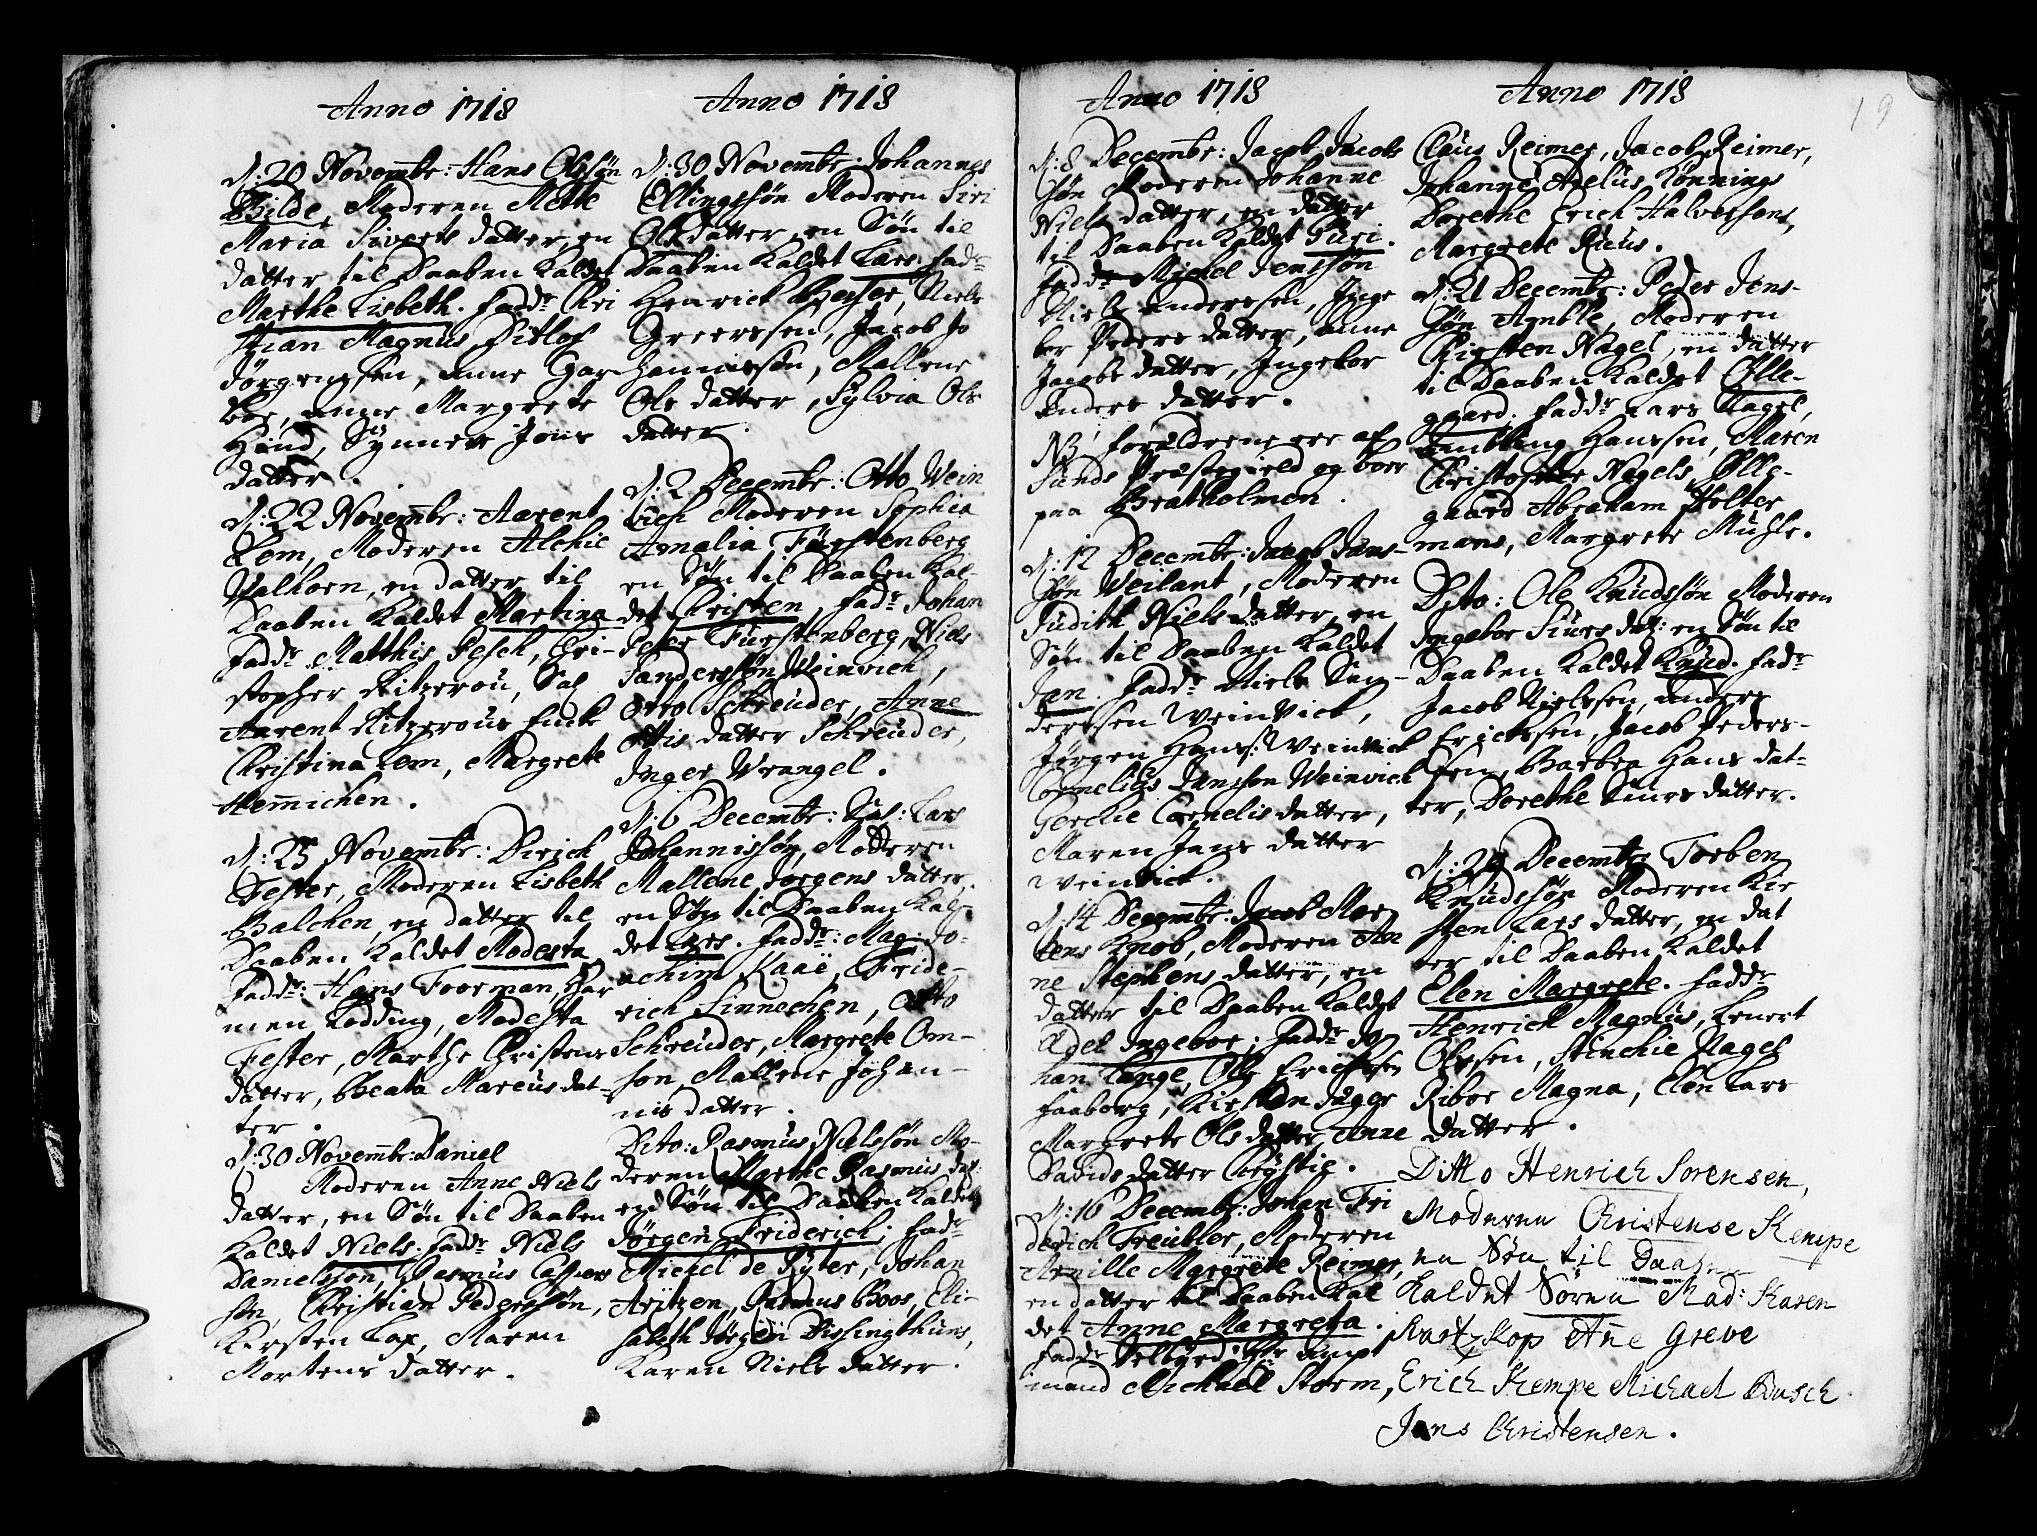 Anno 1718
d: 20 Novembr: Hans Olssøn
Bilde, Moderen Mette
Maria Siverts datter, en
datter til Daaben Kaldet
Marthe Lisbeth. fadd: Chri
stian Magnus, Ditlof
Jørgenssen, Anne Gar
ber, Anne Margrete
Hind, Synneve Jons
datter.
d: 22 Novembr: Aarent
Lem, Moderen Alchie
Valhorn, en datter til
Daaben Kaldet Martina
fadd: Matthis Pesch, Chri-
stopher Ritzerou, Sal
Aarent Ritzerous Encke
Christina Lem, Margrete
Hemmichen.
d: 25 Novembr: Dirich
Fester, Moderen Lisbeth
Balchen, en datter til
Daaben Kaldet Modesta
fadd: Hans Foorman, Har
men Lodding, Modesta
Fester, Marthe Christens
datter, Beata Marcus dat-
ter.
d: 30 Novembr: Daniel
Moderen Anne Niels
datter, en Søn til Daaben
Kaldet Niels. fadd: Niels
Danielssøn, Rasmus Caspers
søn, Christian Pederssøn,
Kirsten Lax, Maren
Mortens datter.
Anno 1718
d: 30 Novembr: Johannes
Ellingssøn Moderen Siri
Ols datter, en Søn til
Daaben Kaldet Lars. fad:
Henrich Beyer, Niels
Greerssen, Jacob Jo
hannissøn, Mallene
Ols datter, Sylvia Ols
datter.
d: 2 Decembr: Otto Wein
vich Moderen Sophia
Amalia Fürstenberg
en Søn til Daaben Kal
det Christen, fad: Johan
Peter Fürstenberg, Niels
Sanderssøn Weinvich,
Otto Schreuder, Anne
Ottis datter Schreuder,
Inger Wrangel.
d: 6 Decembr: Sal: Lars
Johannissøn, Moderen
Mallene Jørgens datter,
en Søn til Daaben Kal-
det Lars. fadd: Mag: Jo-
achim Kaae, Fride-
rich Linnechen, Otto
Schreuder, Margrete Om-
søn, Mallene Johan-
nis datter.
Dito: Rasmus Nielssøn Mo-
deren Marthe Rasmus dat:
en Søn til Daaben Kaldet
Jørgen Friderich; fad:
Michel de Ryter, Johan
Aritzen, Rasmus Boos, Eli-
sabeth Jørgen Dissingthuns,
Karen Niels datter.
Anno 1718
d: 8 Decembr: Jacob Jacobs
søn Moderen Johanne
Niels datter, en datter
til Daaben Kaldet Guri.
fadd: Michel Jenssøn
Niels Anderssen, Inge
bor Peders datter, Anne
Jacobs datter, Ingebor
Anders datter.
NB, forældrene ere af
Sunds Præstegield og boer
paa Bratholmen.
d: 12 Decembr: Jacob Jans-
søn Weilant, Moderen
Judith Niels datter, en
Søn til Daaben Kaldet
Jan. fadd: Niels San-
derssen Weinvich,
Jørgen Hanss: Weinvich
Cornelius Janssøn Weinvich
Gerchie Cornelis datter,
Maren Jans datter
Weinvich.
d: 14 Decembr: Jacob Mor
tens Knob, Moderen An
ne Stephens datter, en
datter til Daaben Kaldet
Adel Ingebor; fadd: Jo
han Lange, Ole Erichssøn
Faaborg, Kirsten Juger
Margrete Ols datter, Anne
Davids datter Chrystie.
d: 16 Decembr: Johan Fri
derich Treubler, Moderen
Arnille Margrete Reimer,
en datter til Daaben Kal
det Anne Margreta.
fadd: Velbyrd: Hr Ampt
mand Michael Storm,
Anno 1718
19
Claus Reimer, Jacob Reimer,
Johanne Abelus Kønnings
Dorethe Erich Halvorssøns,
Margrete Rieus.
d: 21 Decembr: Peder Jens-
søn Amble, Moderen
Kirsten Nagel, en datter
til Daaben Kaldet Olle-
gaard. fadd: Lars Nagel,
Ambling Hanssen, Maren
Christopher Nagels, Olle-
gaard Abraham Holter
mans, Margrete Muhle.
Dito: Ole Knudssøn Moderen
Ingebor Siurs dat: en Søn til
Daaben Kaldet Knud. fad:
Jacob Nielssen, Anders
Erichssen, Jacob Peders-
sen, Barbra Hans dat-
ter, Dorethe Siurs datter.
d: 29 Decembr: Torben
Knudssøn Moderen Kir
sten Lars datter, en dat
ter til Daaben Kaldet
Elen Margrete. fadd:
Henrich Magnus, Lenert
Olssen, Stinchie Nagel
Ribor Magna, Elen Lars
datter.
Ditto Henrich Sorensen,
Moderen Christense Kempe
en Søn til Daaben
Kaldet Søren Mad: Karen
Kortzkop Anne Greve
Erich Kempe Michael Busch
Jens Christensen.